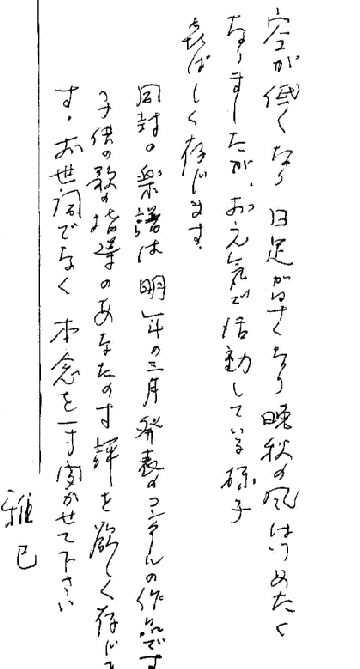 空が低くなり日足が早くなり晩秋の風はつめたく
なりましたが、お元気で活動している様子
喜ばしく存じます。
同封の楽譜は明年の三月発表のコンクールの作品です
子供の歌の指導のあなたの寸評を欲しく存じま
す。お世辞でなく本念を一寸聞かせて下さい
雅已